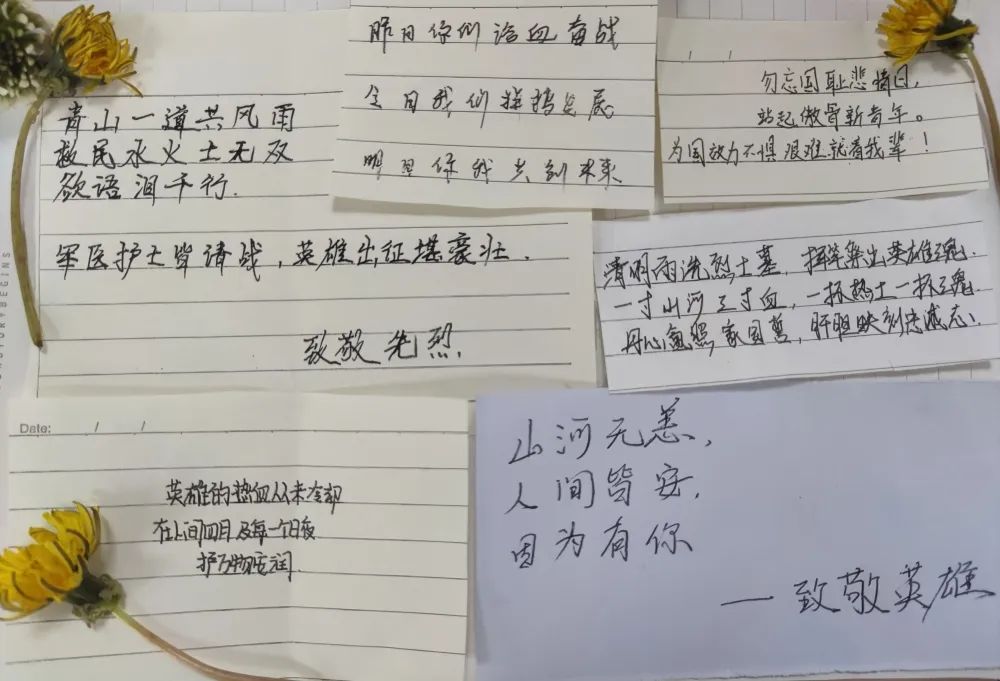 青山一道共风雨
救民水火士无双
欲语泪千行.
军医护士皆请战，英雄出征堪豪壮.
致敬先烈.
昨日你们浴血奋战
今日我们拼搏发展
明日你我共创未来
勿忘国耻悲情日，
站起傲骨新青年。
为国效力不惧艰难就看我辈！
清明雨洗烈士墓，挥笔集出英雄魂.
一寸山河一寸血，一抔热土一抔魂.
丹心氤照家国誓，肝胆映刻忠诚志.
Date: / /
英雄的热血从未冷却
在人间四月及每一个日夜
护万物安润.
山河无恙，
人间皆安，
因为有你
—致敬英雄